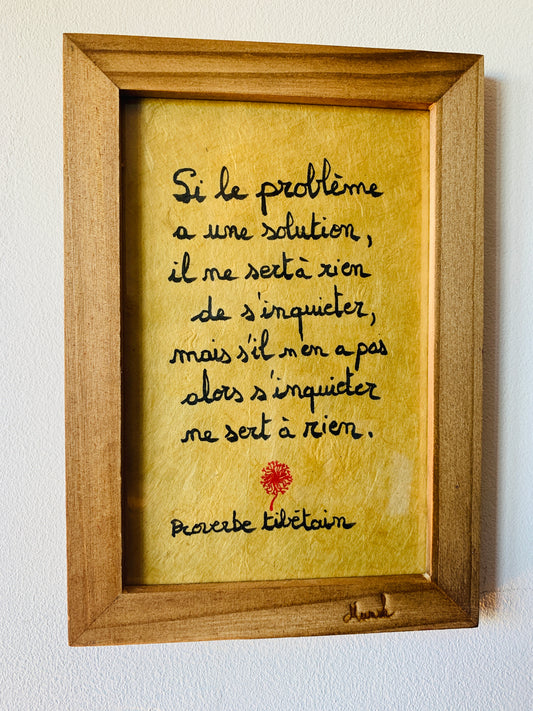 Si le problème
a une solution,
il ne sert à rien
de s'inquieter,
mais s'il n'en a pas
alors s'inquieter
ne sert à rien.
Proverbe tibétain